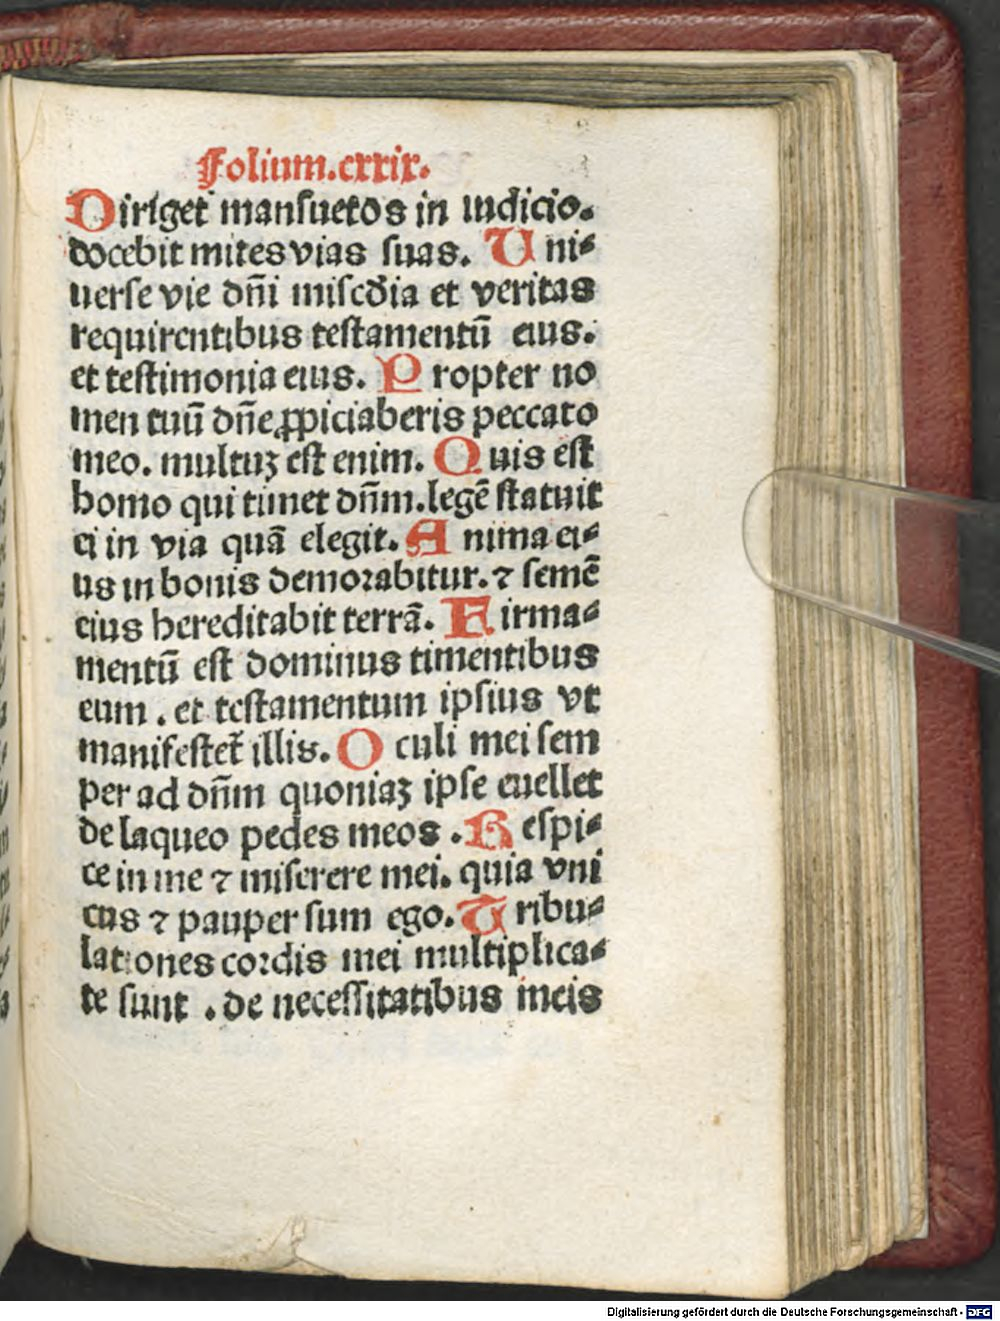 Folium.cxxix.
Diriget mansuetos in iudicio.
docebit mites vias suas. Uni-
uerse vie dñi miscðia et veritas
requirentibus testamentũ eius.
et testimonia eius. Propter no
men tuũ dñe ꝓpiciaberis peccato
meo. multuꝫ est enim. Quis est
homo qui timet dñm.legẽ statuit
ei in via quã elegit. Anima ei-
us in bonis demorabitur. ⁊ semẽ
eius hereditabit terrã. Firma-
mentũ est dominus timentibus
eum . et testamentum ipsius vt
manifestet̃ illis. Oculi mei sem
per ad dñm quoniaꝫ ipse euellet
de laqueo pedes meos . Respi-
ce in me ⁊ miserere mei. quia vni
cus ⁊ pauper sum ego. Tribu-
lationes cordis mei multiplica-
te sunt . de necessitatibus meis
Digitalisierung gefördert durch die Deutsche Forschungsgemeinschaft - DFG